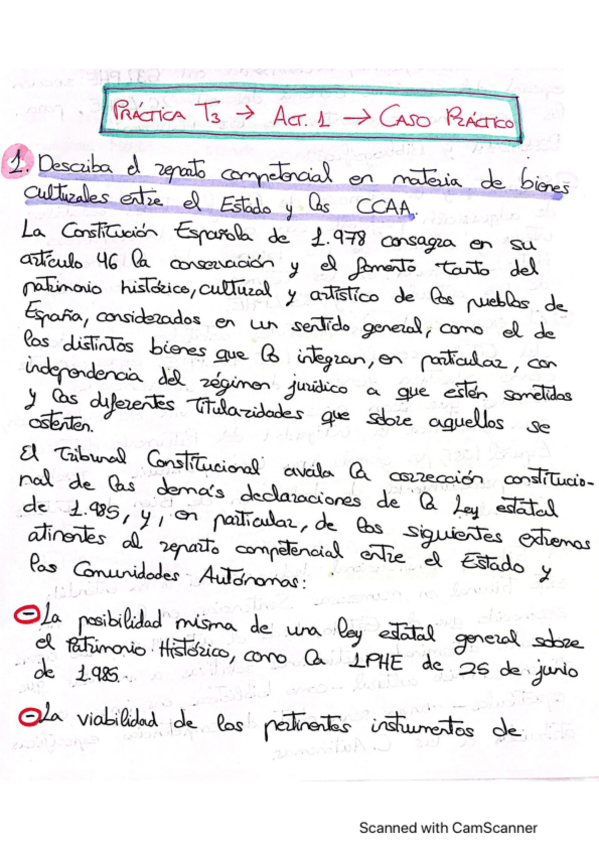 PRÁCTICA T3 → ACT. 1 → CASO PRÁCTICO
1. Describa el reparto competencial en materia de bienes
culturales entre el Estado y las CCAA.
La Constitución Española de 1.978 consagra en su
artículo 46 la conservación y el fomento tanto del
patrimonio histórico, cultural y artístico de los pueblos de
España, considerados en un sentido general, como el de
los distintos bienes que lo integran, en particular, con
independencia del régimen jurídico a que estén sometidos
y las diferentes titularidades que sobre aquellos se
ostenten.
El Tribunal Constitucional avala la corrección constitucio-
nal de las demás declaraciones de la Ley estatal
de 1.985, y, en particular, de los siguientes extremos
atinentes al reparto competencial entre el Estado y
las Comunidades Autónomas:
- La posibilidad misma de una ley estatal general sobre
el Patrimonio Histórico, como la LPHE de 25 de junio
de 1.985.
- La viabilidad de los pertinentes instrumentos de
Scanned with CamScanner